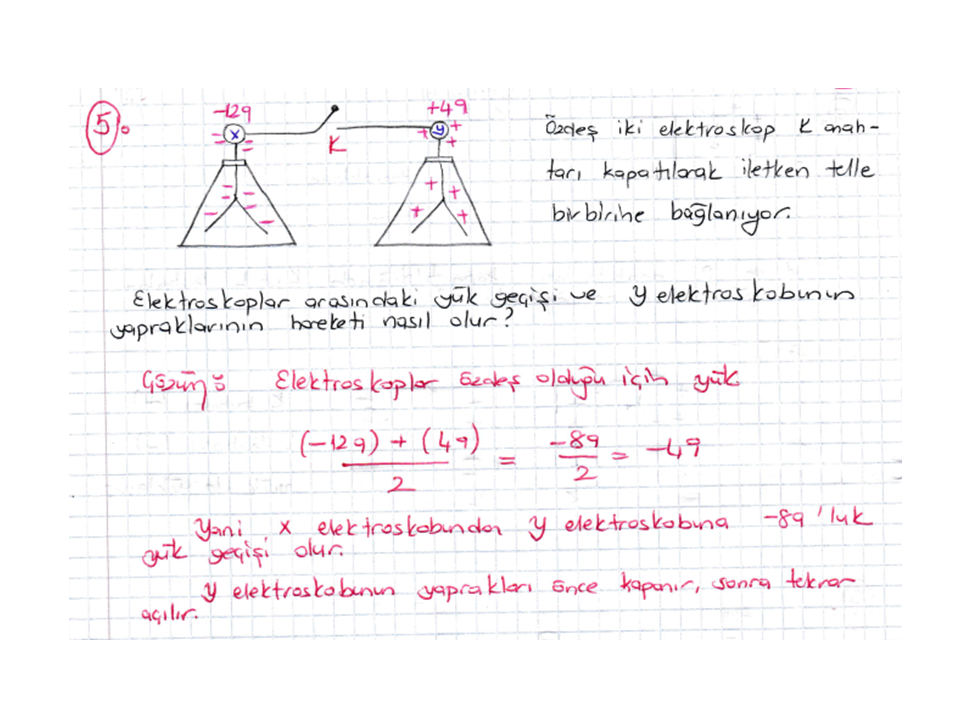 5.
-12q
+4q
x
y
K
Özdeş iki elektroskop K anah-
tarı kapatılarak iletken telle
birbirine bağlanıyor.
Elektroskoplar arasındaki yük geçişi ve y elektroskobunun
yapraklarının hareketi nasıl olur?
Çözüm: Elektroskoplar özdeş olduğu için yük
(-12q) + (4q) / 2 = -8q / 2 = -4q
Yani x elektroskobundan y elektroskobuna -8q'luk
yük geçişi olur.
y elektroskobunun yaprakları önce kapanır, sonra tekrar
açılır.